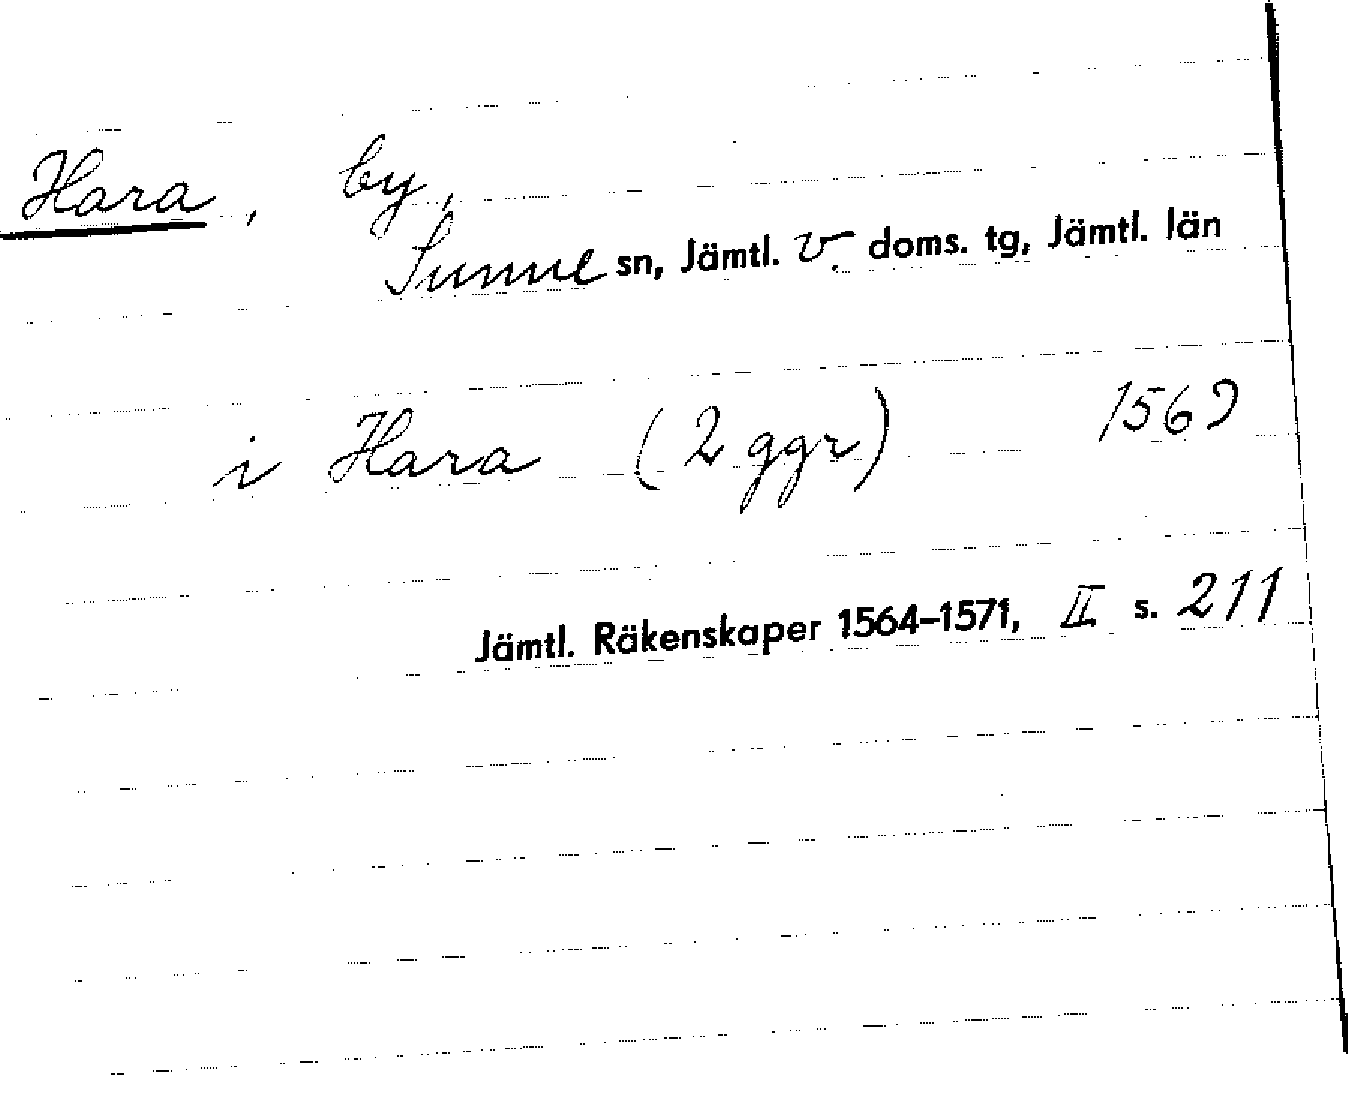 Hara, by,
Sunne sn, Jämtl. v. doms. tg, Jämtl. län
i Hara (2 ggr) 1569
Jämtl. Räkenskaper 1564–1571, II s. 211